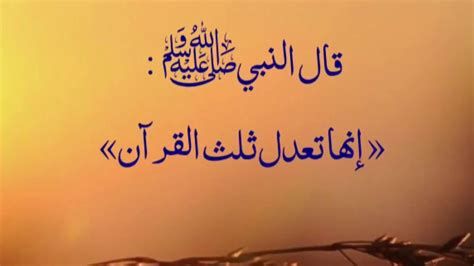 قال النبي ﷺ :
«إنها تعدل ثلث القرآن»